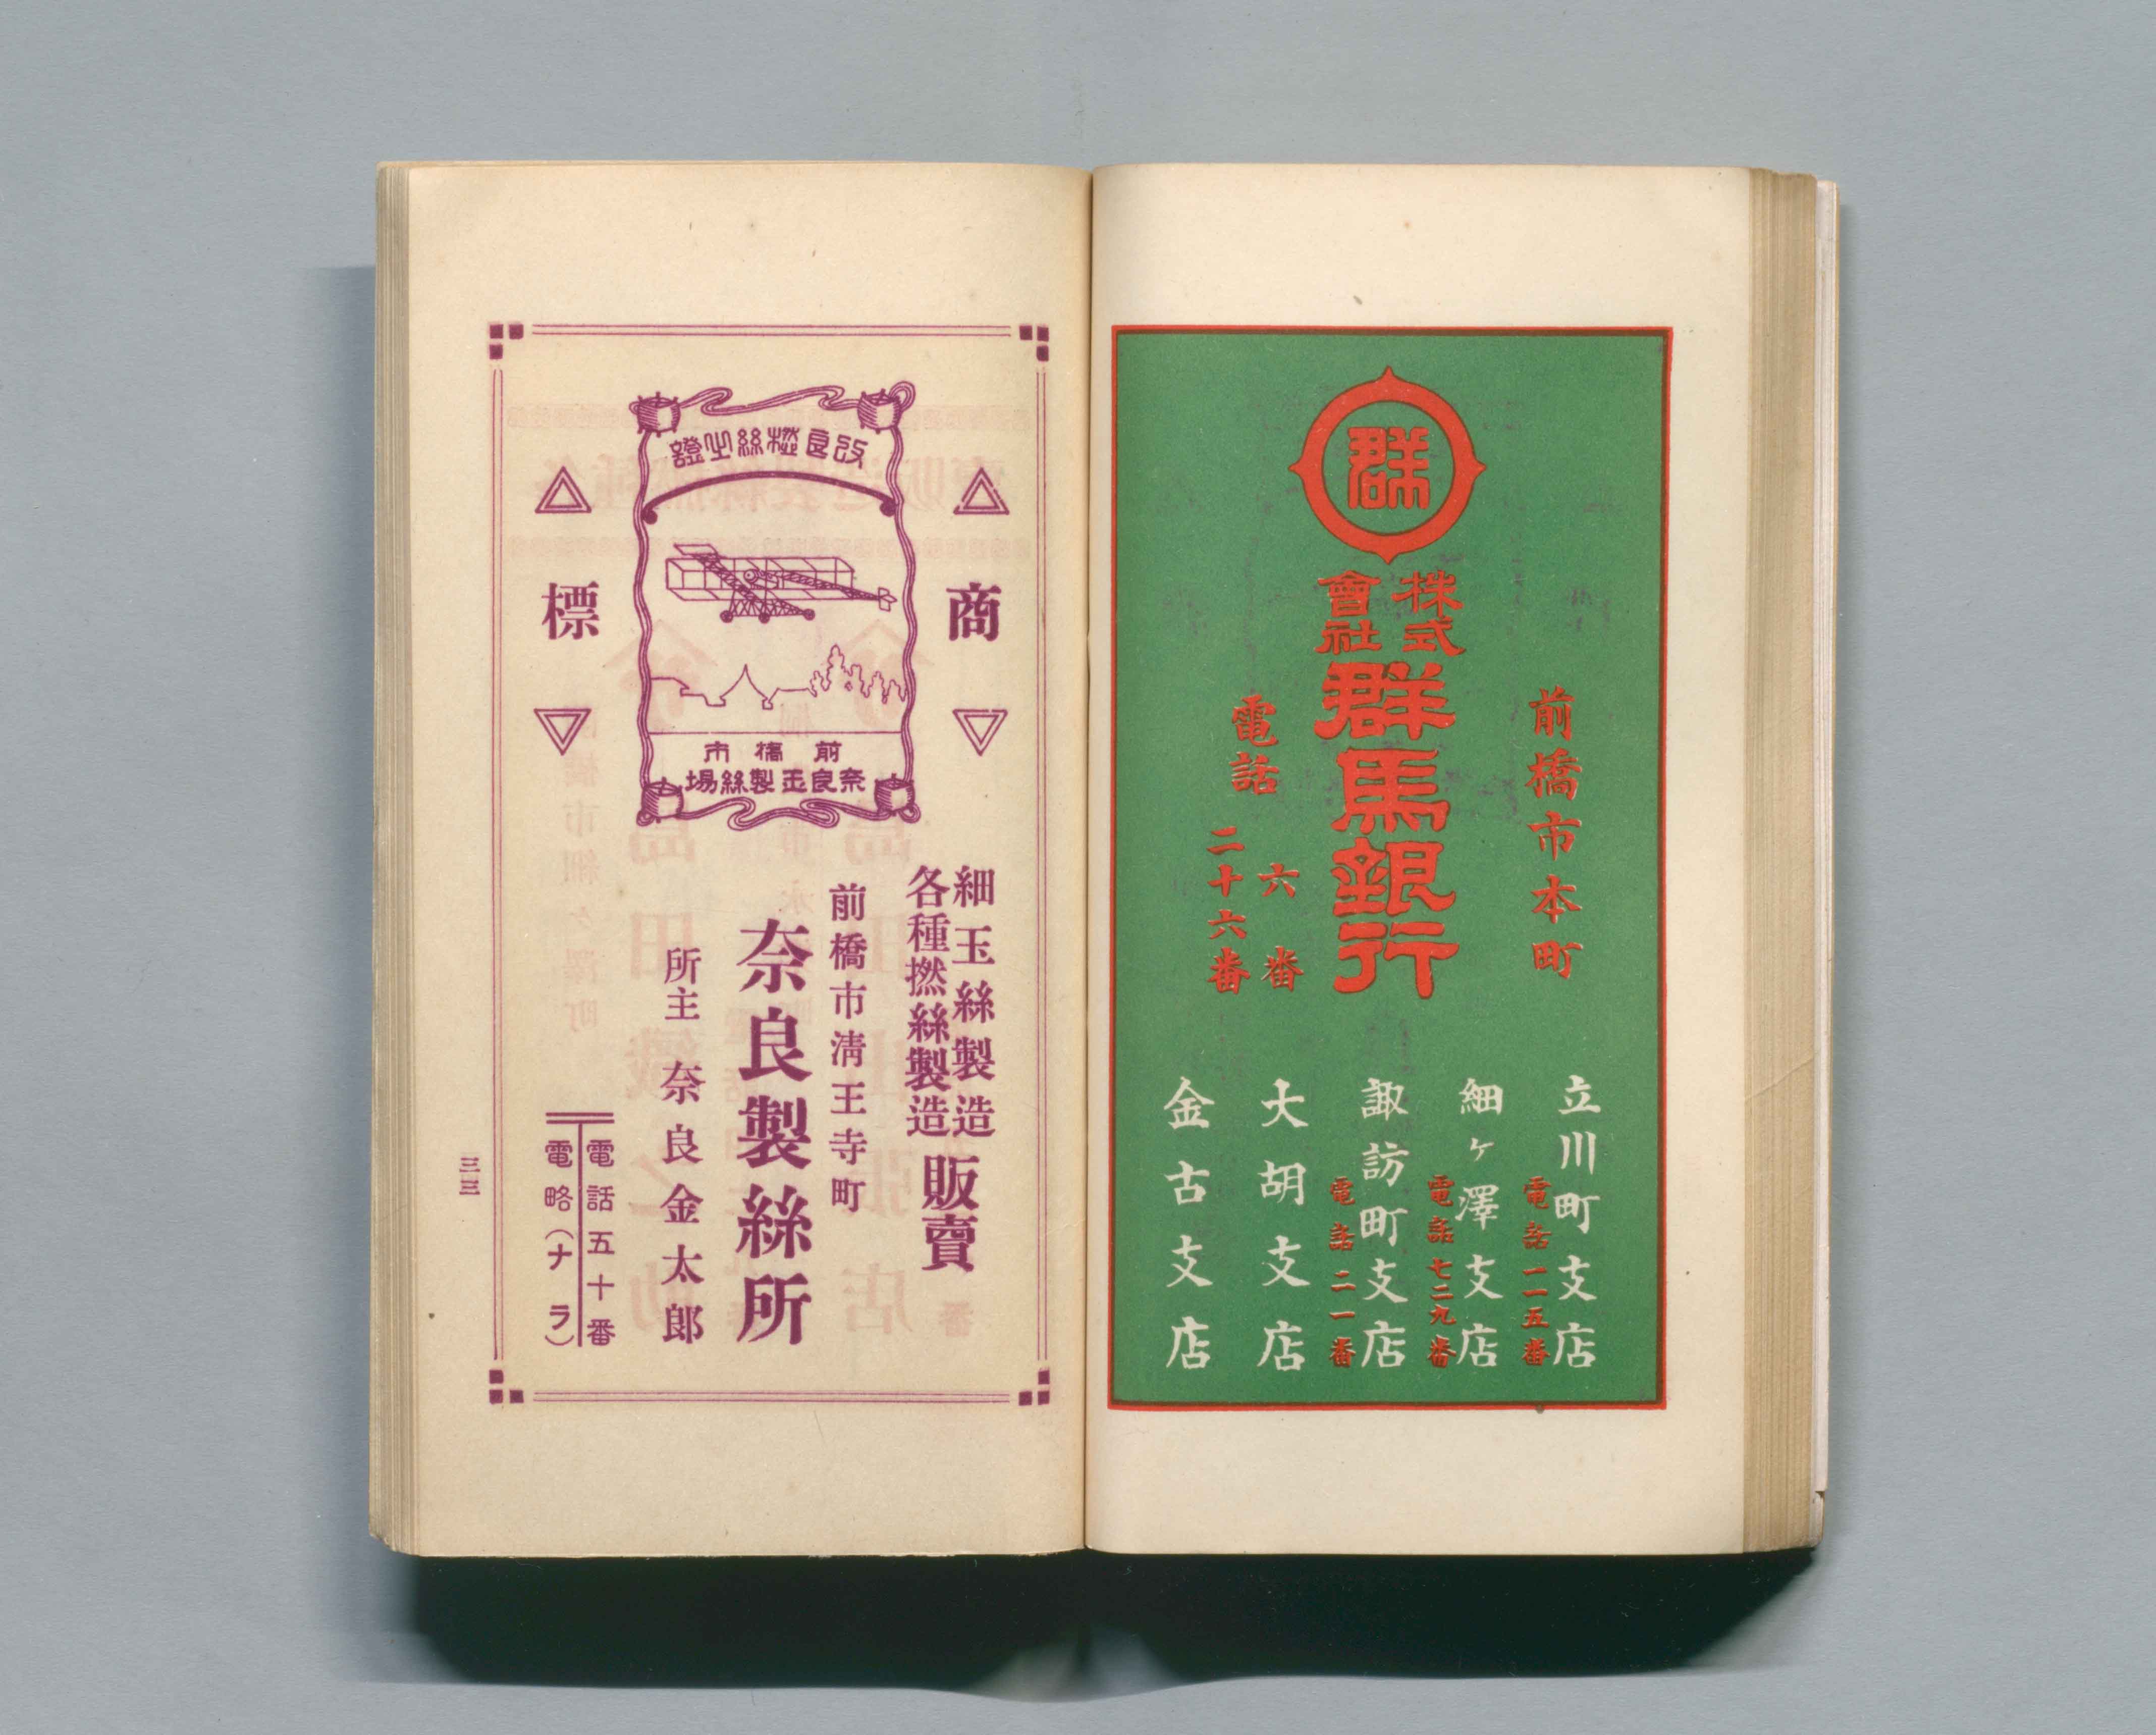 群
株式
會社
群馬銀行
前橋市本町
電話
六番
二十六番
立川町支店
電話一一五番
細ヶ澤支店
電話七二九番
諏訪町支店
電話二一番
大胡支店
金古支店
商標
改良撚絲之證
前橋市
奈良玉製絲場
細玉絲製造
各種撚絲製造
販賣
前橋市清王寺町
奈良製絲所
所主 奈良金太郎
電話五十番
電略(ナラ)
三三